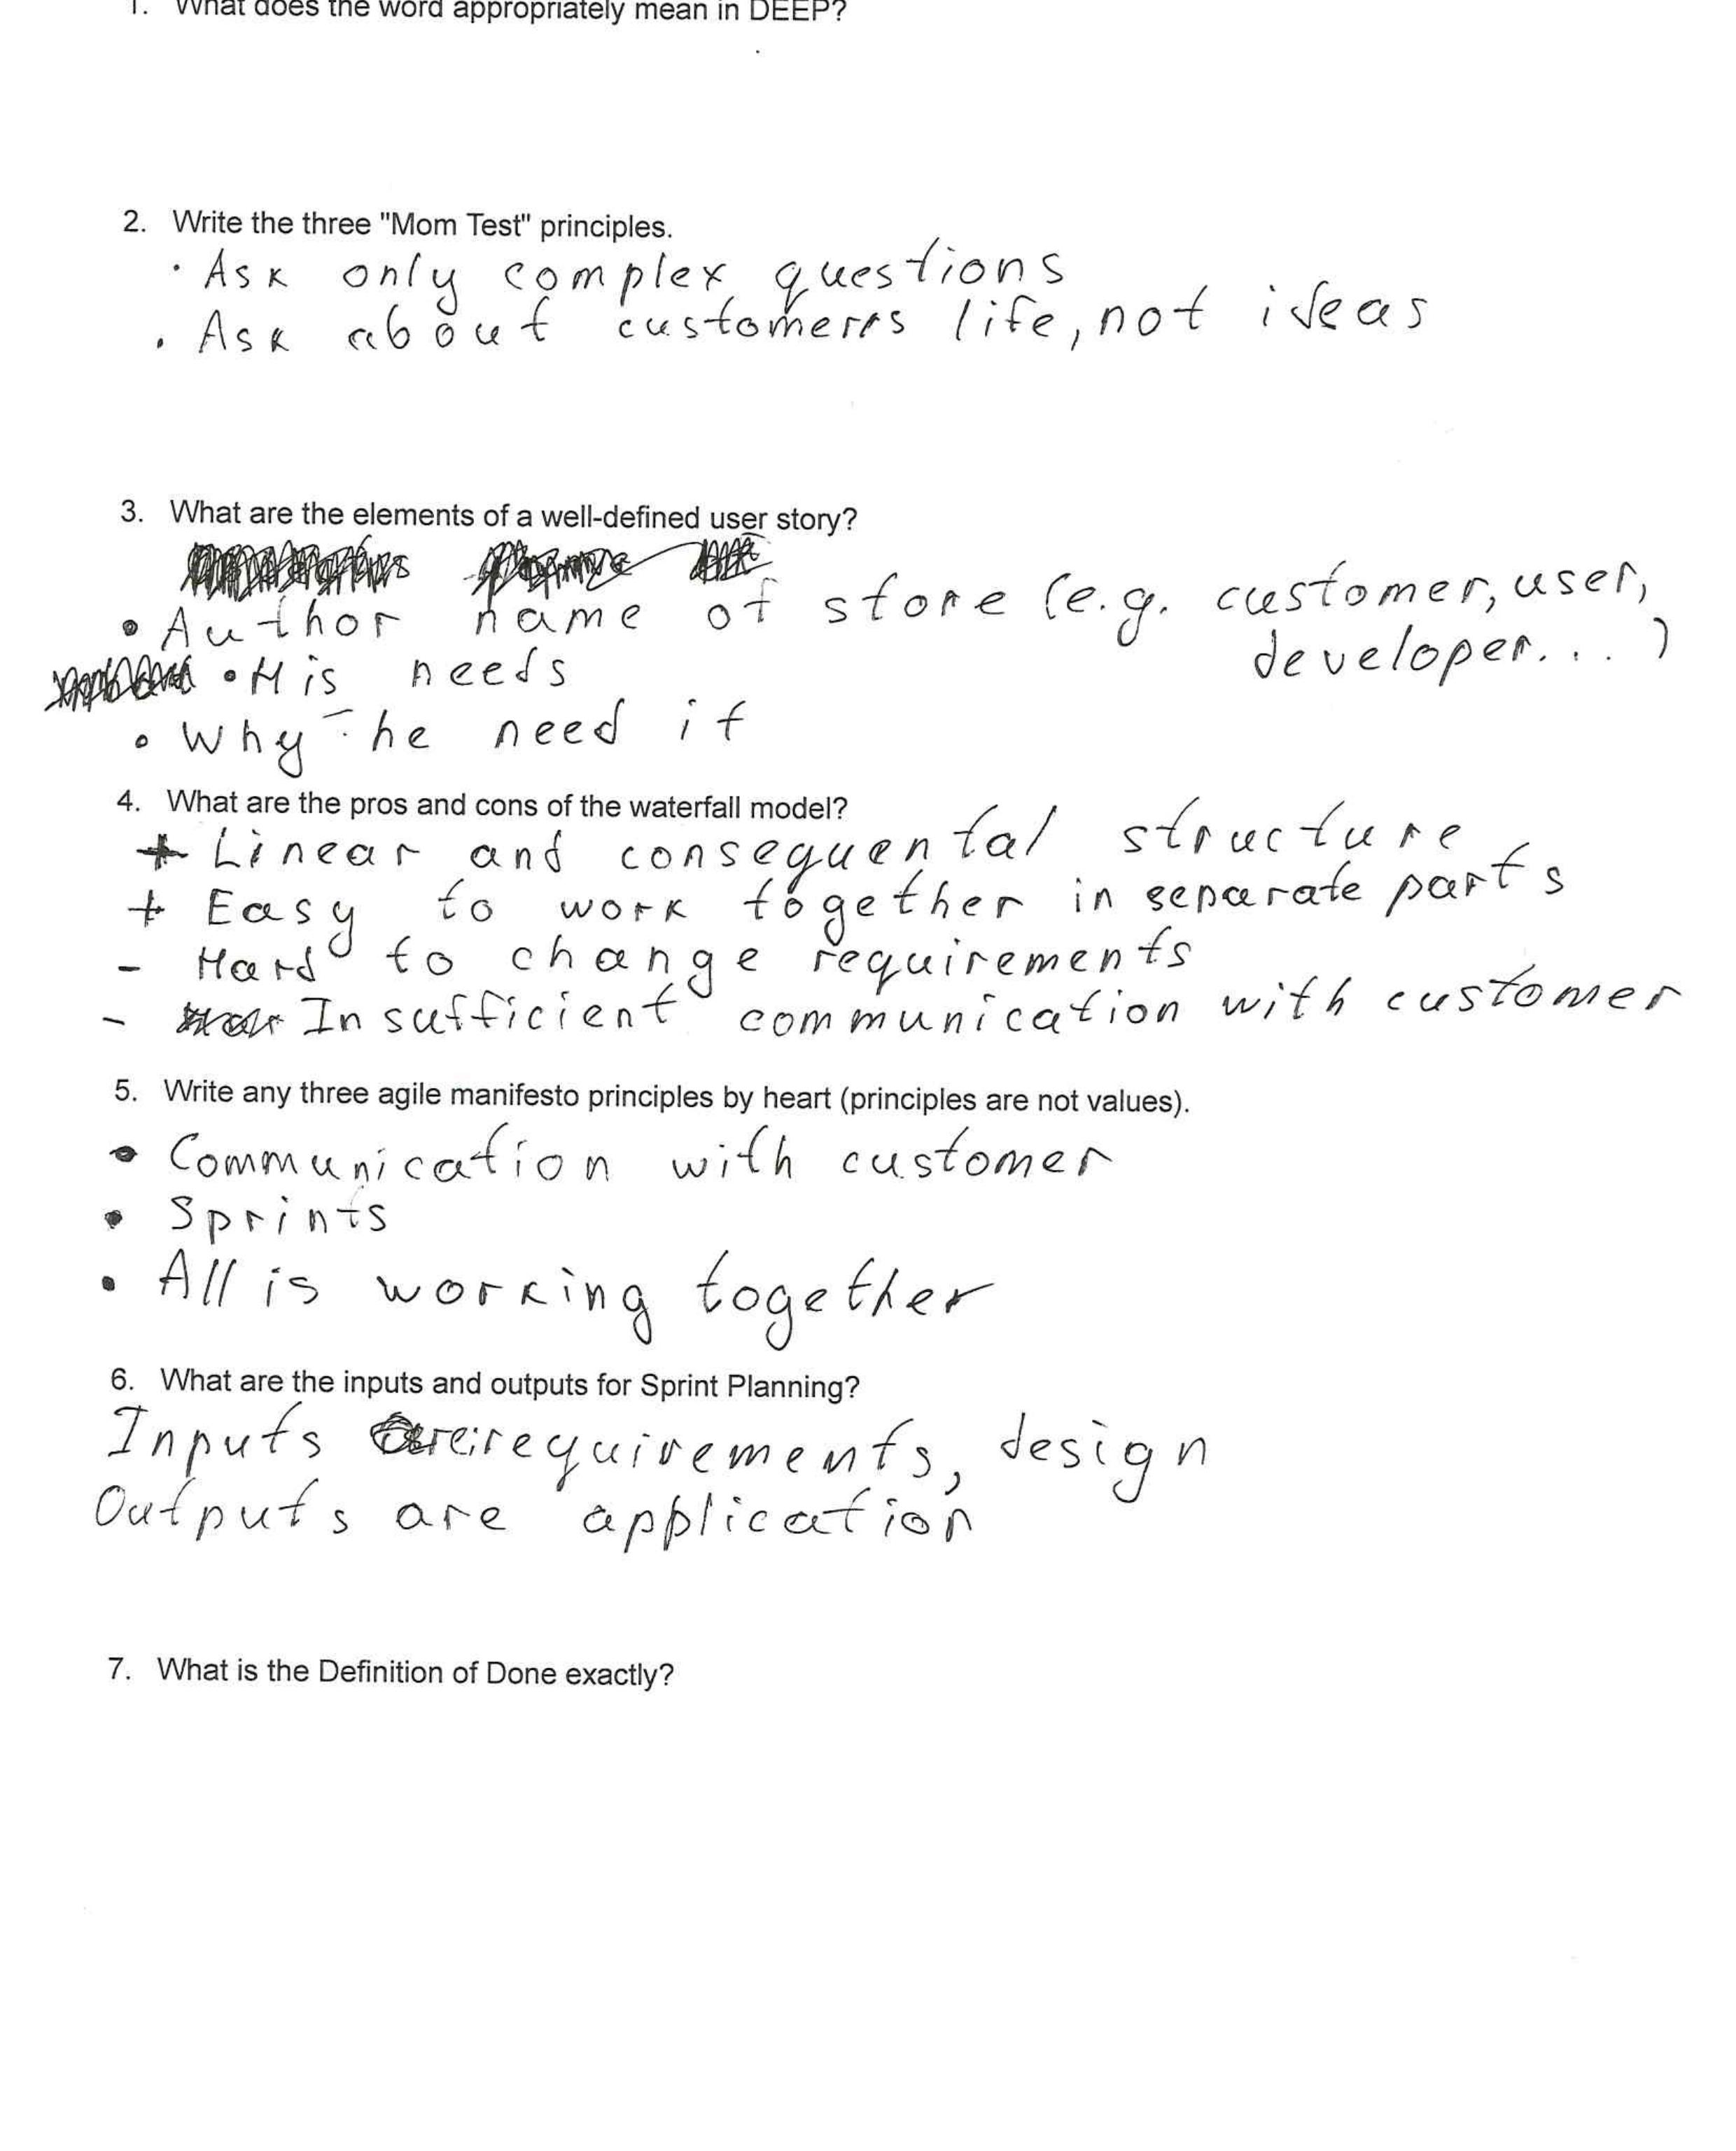 1. What does the word appropriately mean in DEEP?
2. Write the three "Mom Test" principles.
· Ask only complex questions
· Ask about customerrs life, not ideas
3. What are the elements of a well-defined user story?
• Author name of store (e.g. customer, user,
developer...)
• His needs
• Why he need it
4. What are the pros and cons of the waterfall model?
+ Linear and consequental structure
+ Easy to work together in separate parts
- Hard to change requirements
- Insufficient communication with customer
5. Write any three agile manifesto principles by heart (principles are not values).
• Communication with customer
• Sprints
• All is working together
6. What are the inputs and outputs for Sprint Planning?
Inputs requirements, design
Outputs are application
7. What is the Definition of Done exactly?